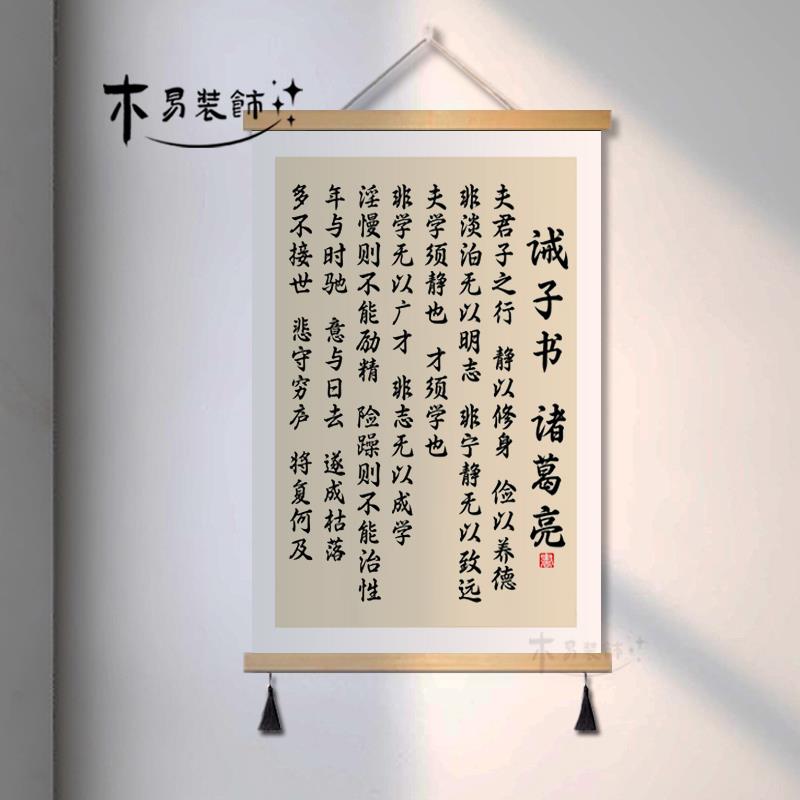 木易装飾
诫子书 诸葛亮
夫君子之行 静以修身 俭以养德
非淡泊无以明志 非宁静无以致远
夫学须静也 才须学也
非学无以广才 非志无以成学
淫慢则不能励精 险躁则不能治性
年与时驰 意与日去 遂成枯落
多不接世 悲守穷庐 将复何及
木易装飾